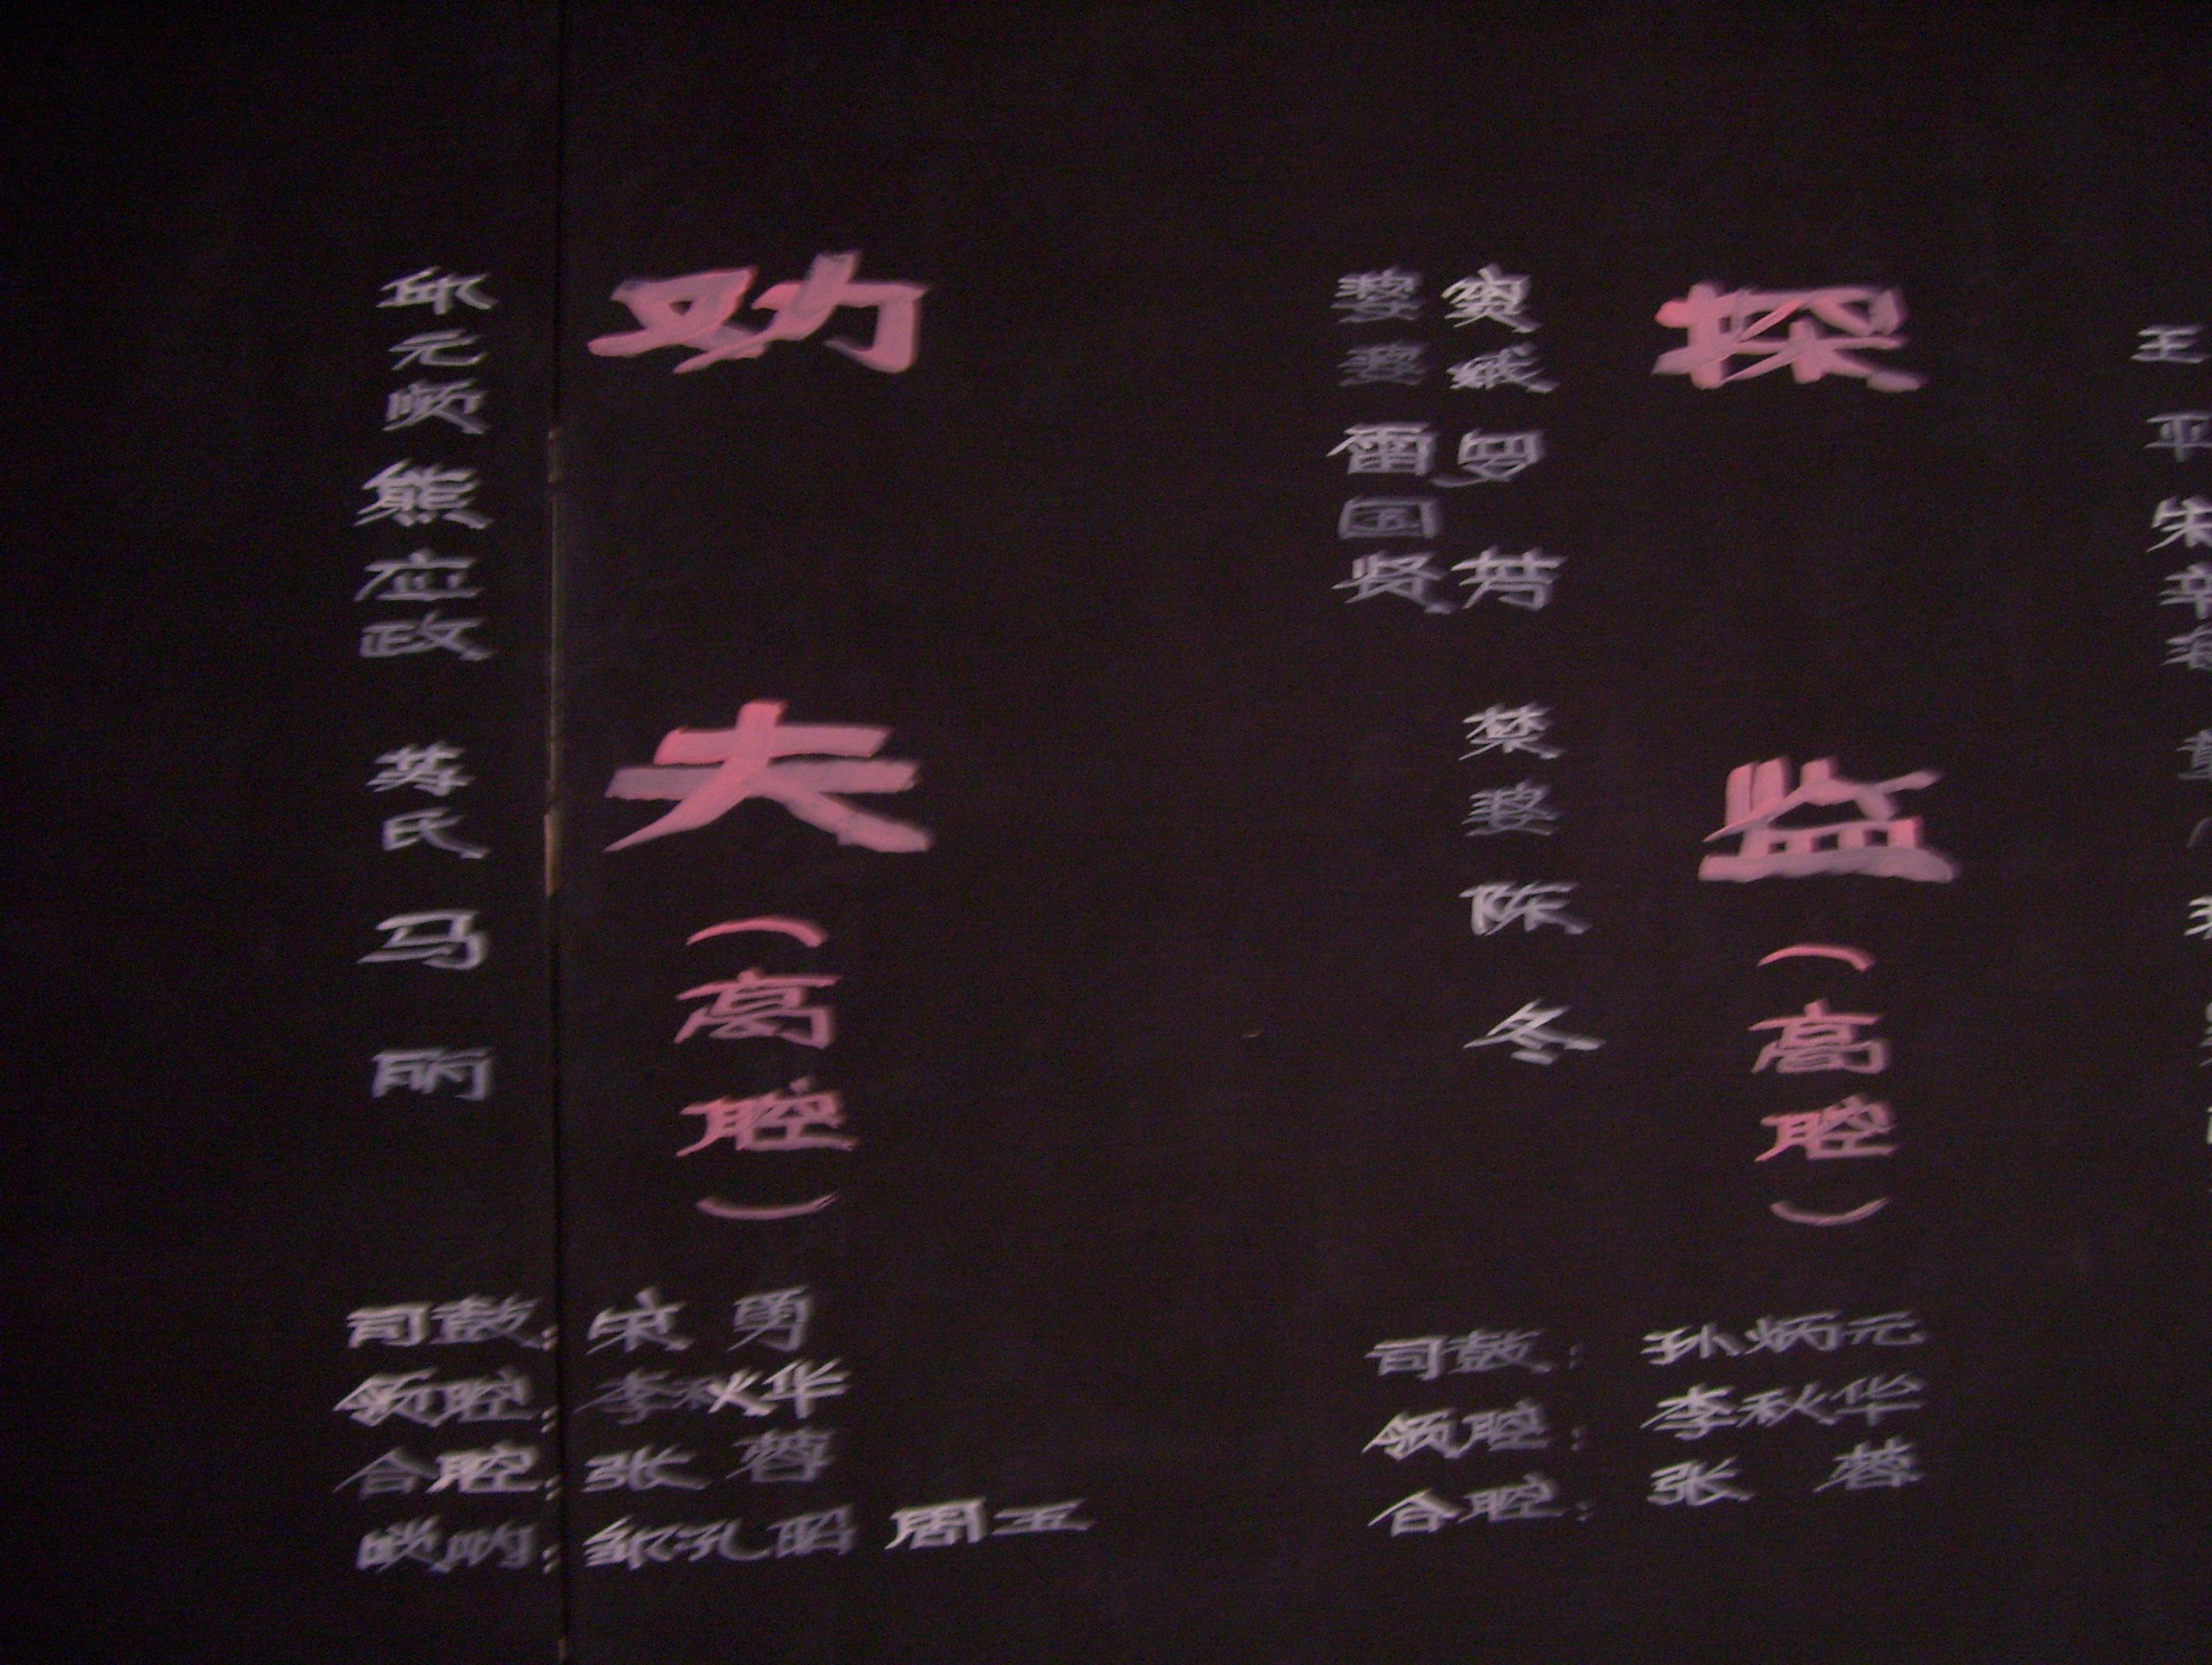 探监（高腔）
窦娥 罗芳
婆婆 雷国贤
禁婆 陈冬
司鼓：孙炳元
领腔：李秋华
合腔：张蓉
劝夫（高腔）
邱元顺 熊应政
蒋氏 马丽
司鼓：宋勇
领腔：李秋华
合腔：张蓉
唢呐：邹孔昭 周玉
王平 朱